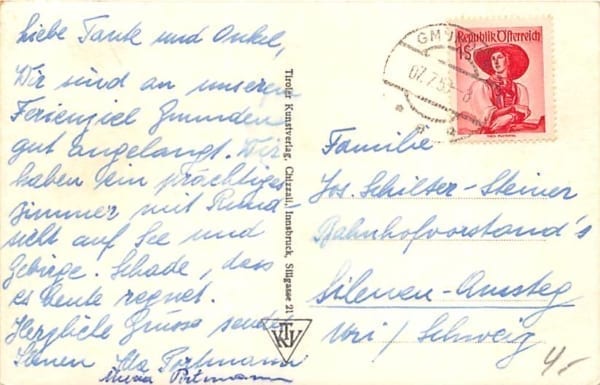 Liebe Tante und Onkel,
Wir sind an unserem
Ferienziel Gmunden
gut angelangt. Wir
haben ein prächtiges
Zimmer mit Rund-
sicht auf See und
Gebirge. Schade, dass
es heute regnet.
Herzliche Grüsse sendet
Ihnen Ida Portmann
Maria Portmann
Tiroler Kunstverlag, Chizzali, Innsbruck, Sillgasse 21
TKV
GMUN
07.7.5
Republik Österreich
1S
Familie
Jos. Schilter-Steiner
Bahnhofvorstand's
Silenen-Amsteg
Uri / Schweiz
4.-